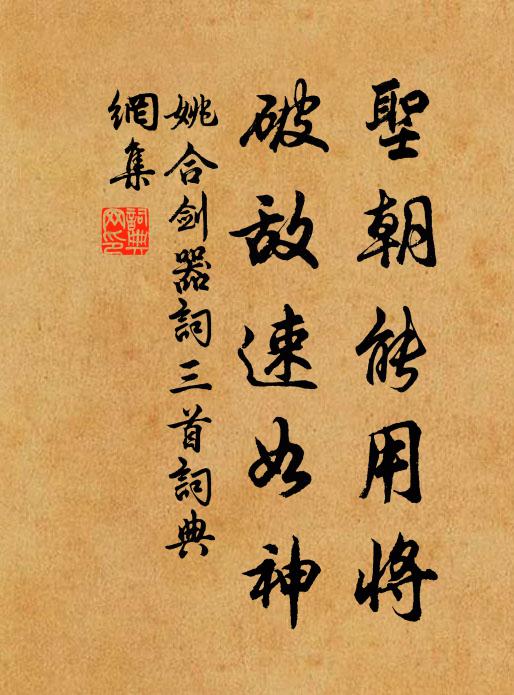 聖朝能用將
破敵速如神
姚合劍器詞三首詞典
網集
詞典
網印